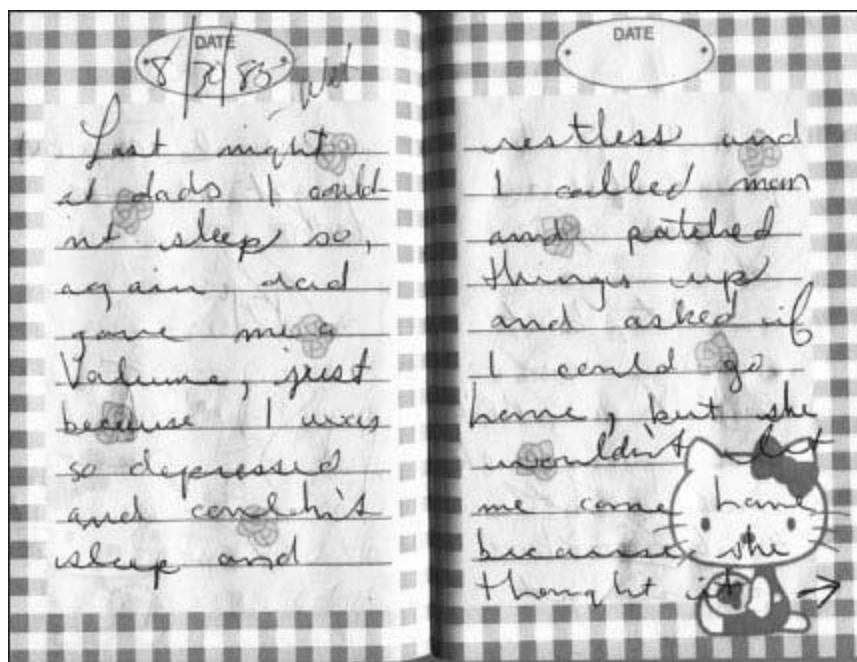 DATE
8/30/85
Wet
Last night
at dads I could-
nt sleep so,
again, dad
gave me a
Valume, just
because I was
so depressed
and couldn't
sleep and
DATE
restless and
I called mom
and patched
things up
and asked if
I could go
home, but she
wouldn't let
me come home
because she
thought it →